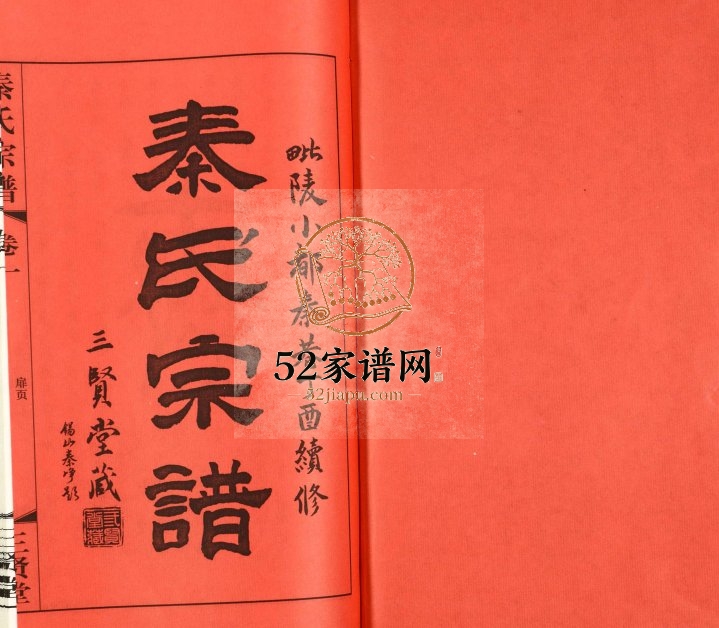 毗陵小部秦黄辛酉續修
秦氏宗譜
三賢堂藏
錫山秦淨題
三賢堂藏
秦氏宗譜
卷一
扉页
三贤堂
52家谱网
52jiapu.com